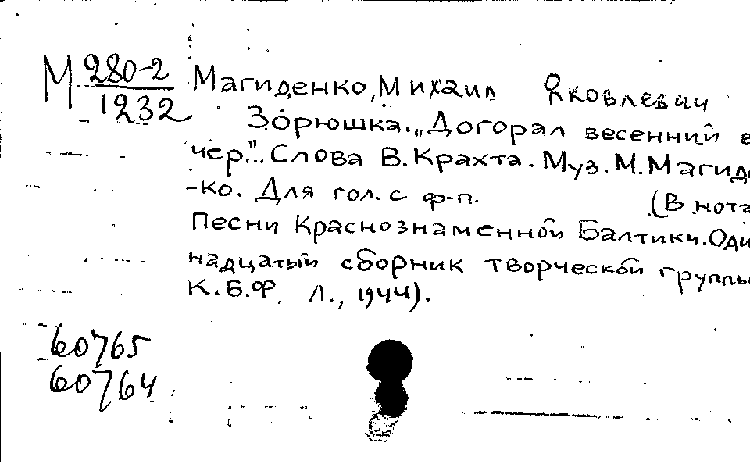 М 280-2
1232
Магиденко, Михаил Яковлевич
Зорюшка. „Догорал весенний ве
чер". Слова В. Крахта. Муз. М. Магиде
-ко. Для гол. с ф-п. (В нота
Песни Краснознаменной Балтики. Оди
надцатый сборник творческой группы
К.Б.Ф. Л., 1944).
60765
60764